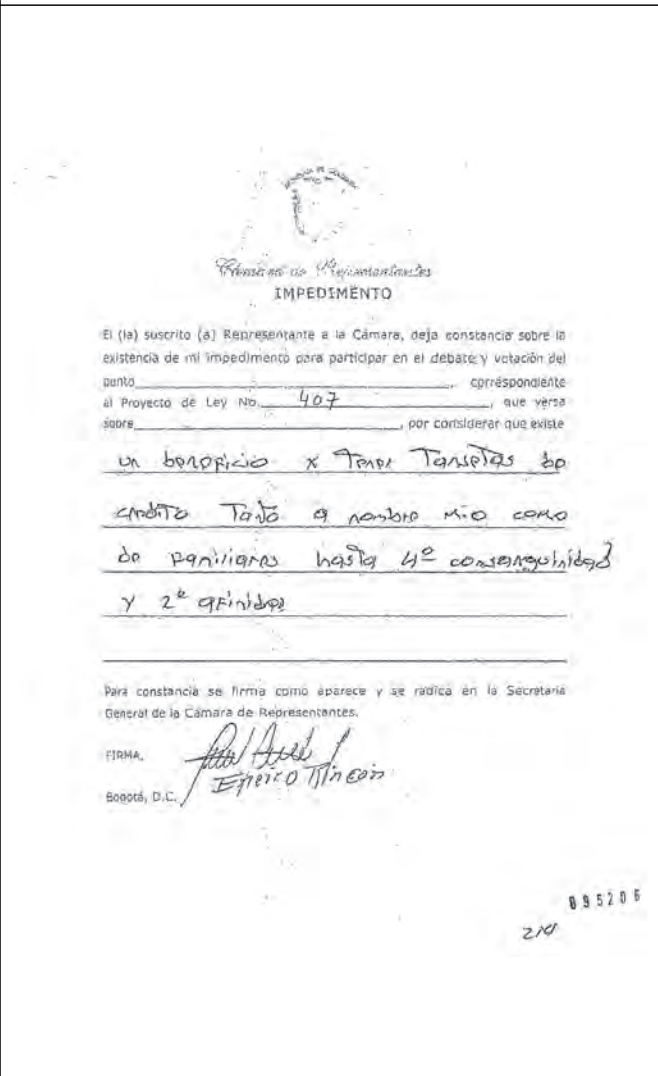 Cámara de Representantes
IMPEDIMENTO
El (la) suscrito (a) Representante a la Cámara, deja constancia sobre la
existencia de mi impedimento para participar en el debate y votación del
punto____________, correspondiente
al Proyecto de Ley No. 407, que versa
sobre____________, por considerar que existe
un beneficio x Tener Tarjetas de
crédito Tanto a nombre mio como
de familiares hasta 4º consanguinidad
y 2º afinidad
Para constancia se firma como aparece y se radica en la Secretaría
General de la Cámara de Representantes.
FIRMA,
Rincon
Bogotá, D.C.
095206